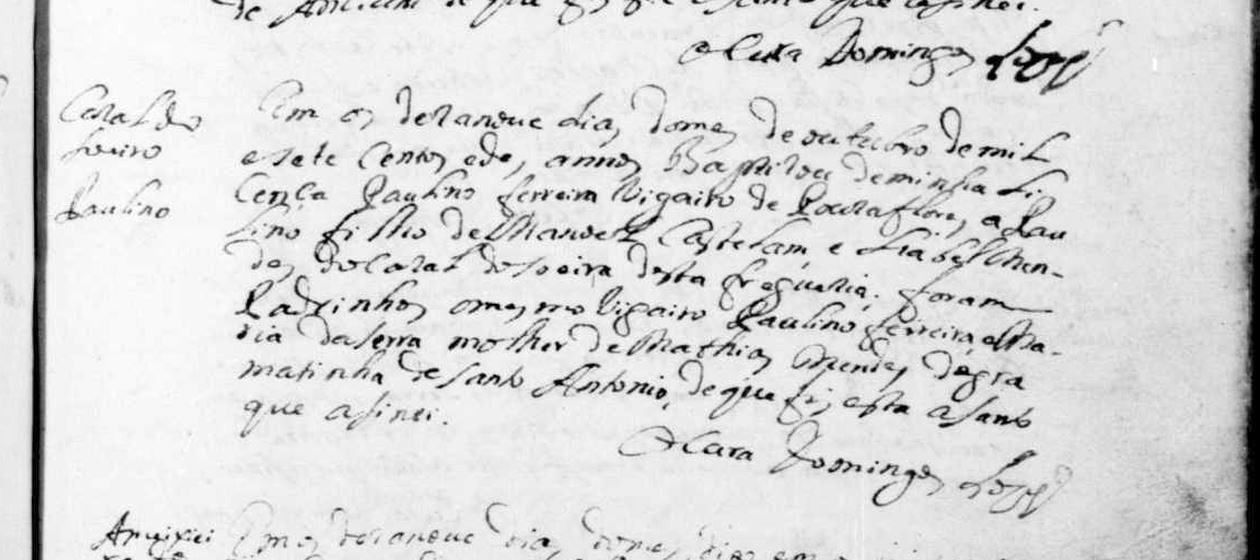 que asinei.
O Cura Domingos Lopes
Casal do
Soeiro
Paulino
Em os dezanove dias do mes de outubro de mil
e sete Centos e des annos Baptizou de minha Li
Cença Paulino ferreira Vigairo de a Pau
lino filho de Manoel Castelam e Isabel Men-
des do Casal do soeira desta freguesia; foram
Padrinhos o mesmo Vigairo Paulino ferreira e Ma-
ria da serra molher de Mathias Mendes
matinha de santo Antonio, de que fis esta asento
que asinei.
O Cura Domingos Lopes
Em os dezanove dias do mes